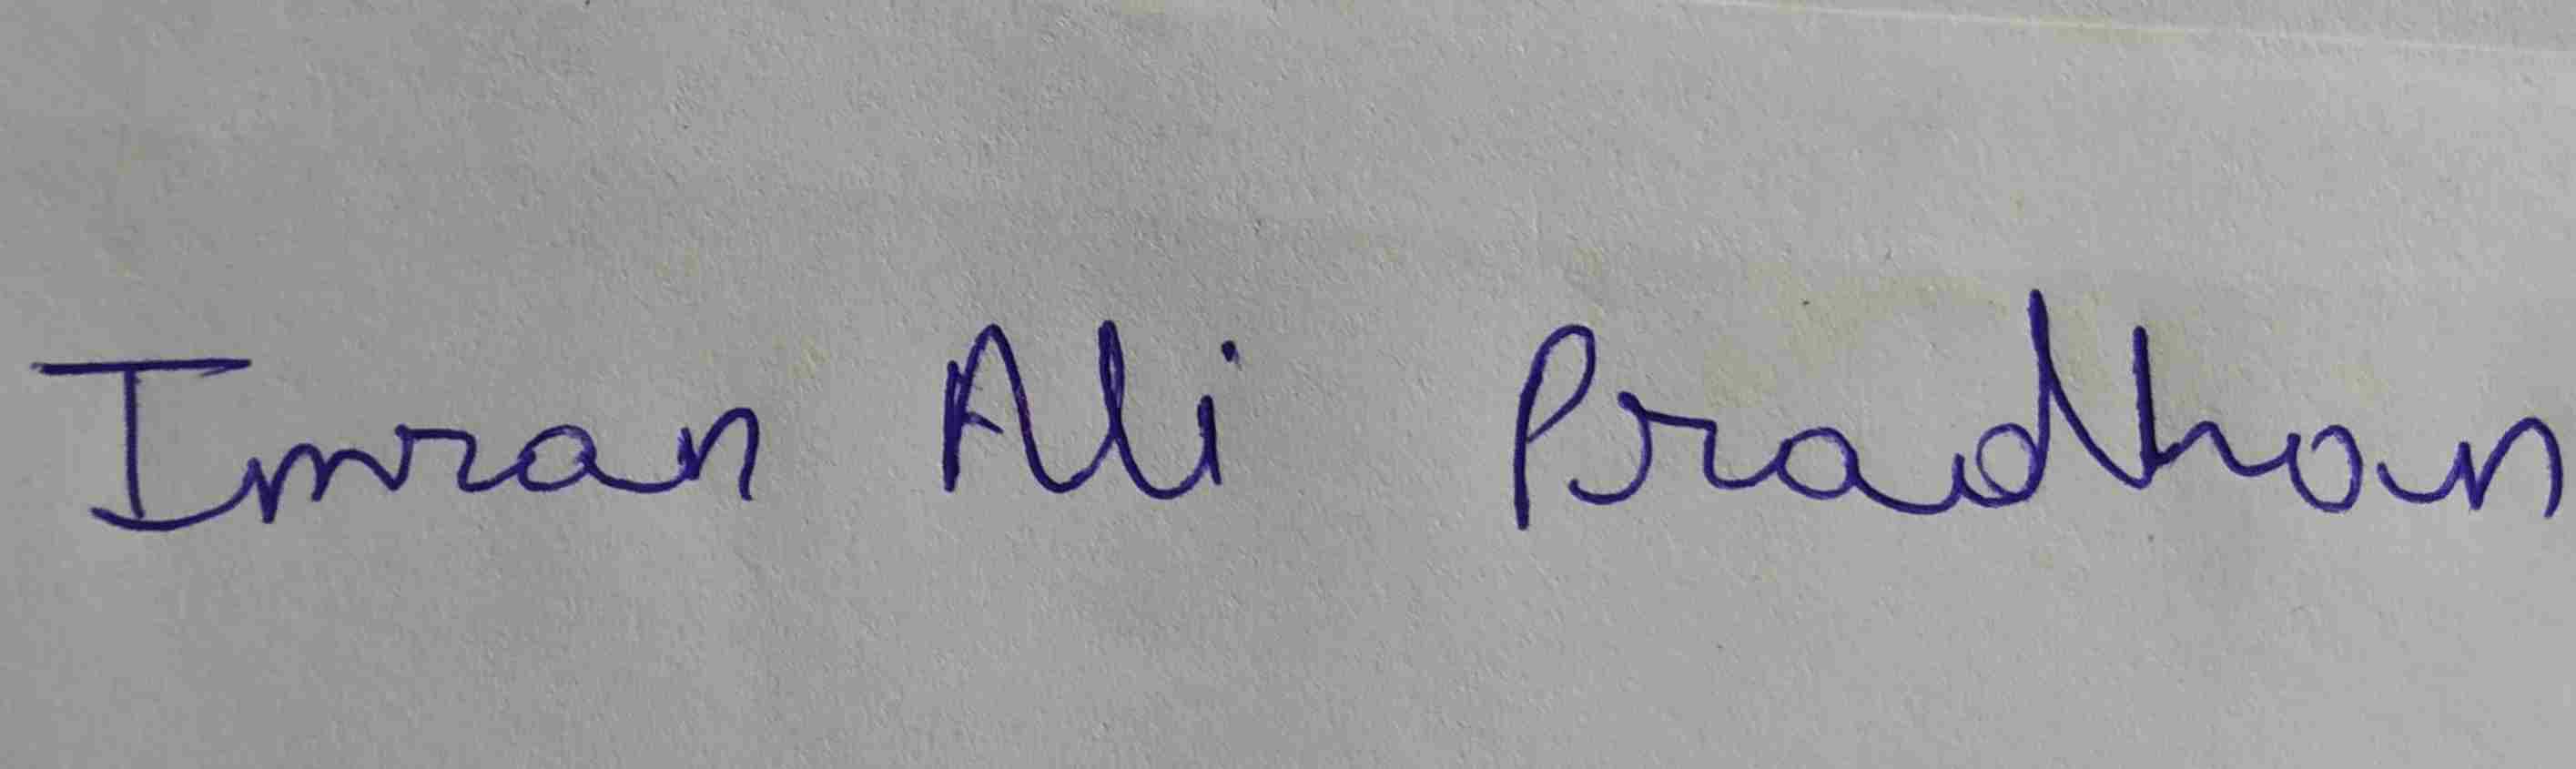 Imran Ali Pradhan